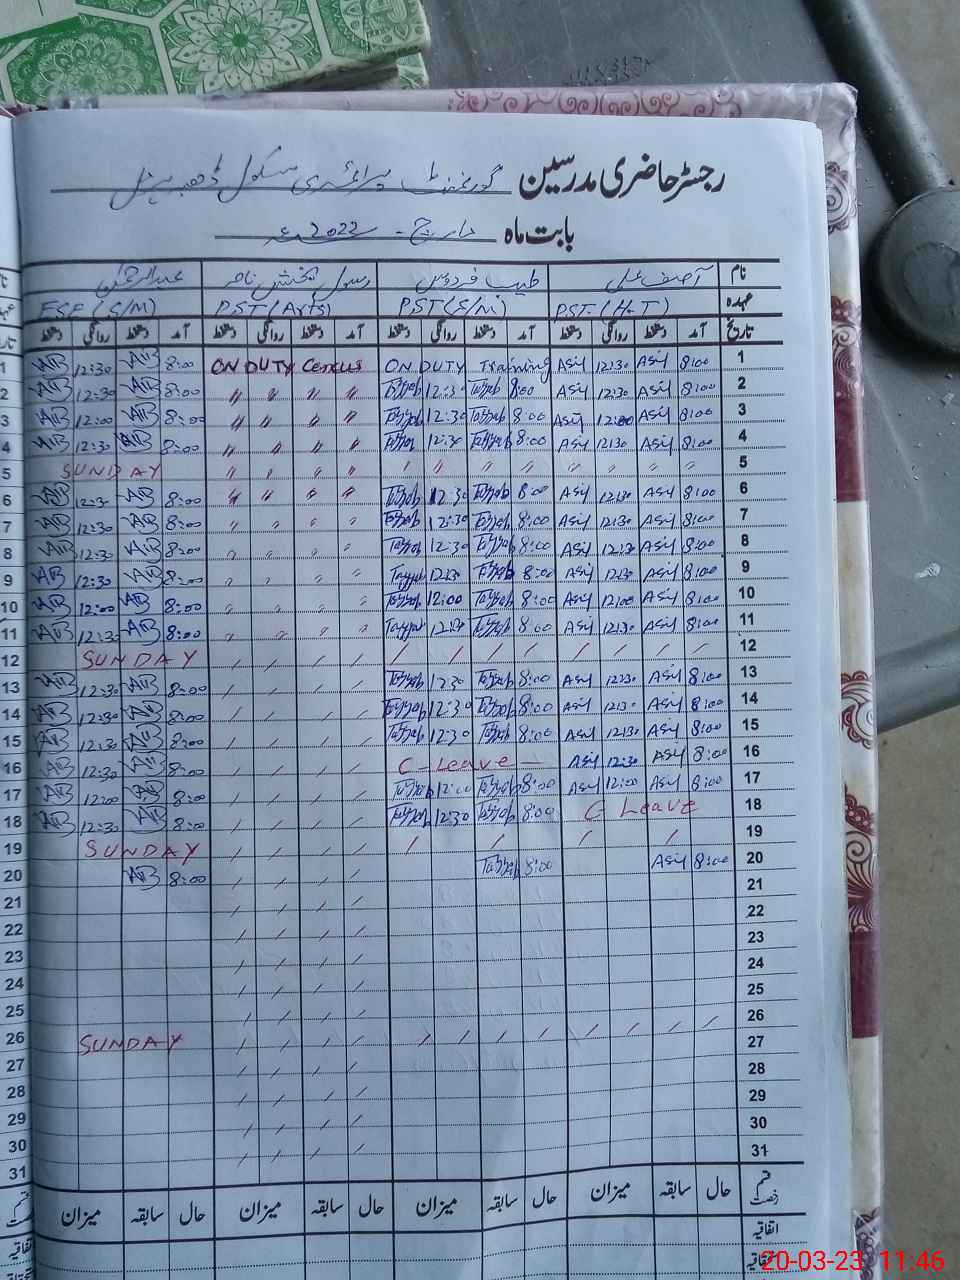 رجسٹر حاضری مدرسین گورنمنٹ پرائمری سکول
بابت ماہ مارچ - 2022ء
نام آصف علی طیب فردوس رسول بخش ناصر عبدالرحمٰن
عہدہ PST (H-T) PST (S/M) PST (Arts) ESE (S/M)
تاریخ آمد دستخط روانگی دستخط آمد دستخط روانگی دستخط آمد دستخط روانگی دستخط آمد دستخط روانگی دستخط
1 8:00 Asif 12:30 Asif ON DUTY Training ON DUTY Census 8:00 AB 12:30 AB
2 8:00 Asif 12:30 Asif 8:00 Tayyab 12:30 Tayyab " " " " 8:00 AB 12:30 AB
3 8:00 Asif 12:00 Asif 8:00 Tayyab 12:30 Tayyab " " " " 8:00 AB 12:00 AB
4 8:00 Asif 12:30 Asif 8:00 Tayyab 12:30 Tayyab " " " " 8:00 AB 12:30 AB
5 " " " " " " " " " " " " SUNDAY
6 8:00 Asif 12:30 Asif 8:00 Tayyab 12:30 Tayyab " " " " 8:00 AB 12:30 AB
7 8:00 Asif 12:30 Asif 8:00 Tayyab 12:30 Tayyab " " " " 8:00 AB 12:30 AB
8 8:00 Asif 12:30 Asif 8:00 Tayyab 12:30 Tayyab " " " " 8:00 AB 12:30 AB
9 8:00 Asif 12:30 Asif 8:00 Tayyab 12:30 Tayyab " " " " 8:00 AB 12:30 AB
10 8:00 Asif 12:00 Asif 8:00 Tayyab 12:00 Tayyab " " " " 8:00 AB 12:00 AB
11 8:00 Asif 12:30 Asif 8:00 Tayyab 12:30 Tayyab " " " " 8:00 AB 12:30 AB
12 / / / / / / / / / / / / SUNDAY
13 8:00 Asif 12:30 Asif 8:00 Tayyab 12:30 Tayyab / / / / 8:00 AB 12:30 AB
14 8:00 Asif 12:30 Asif 8:00 Tayyab 12:30 Tayyab / / / / 8:00 AB 12:30 AB
15 8:00 Asif 12:30 Asif 8:00 Tayyab 12:30 Tayyab / / / / 8:00 AB 12:30 AB
16 8:00 Asif 12:30 Asif C-Leave - / / / / 8:00 AB 12:30 AB
17 8:00 Asif 12:00 Asif 8:00 Tayyab 12:00 Tayyab / / / / 8:00 AB 12:00 AB
18 C Leave 8:00 Tayyab 12:30 Tayyab / / / / 8:00 AB 12:30 AB
19 / / / / / / / / / / SUNDAY
20 8:00 Asif 8:00 Tayyab / / / / 8:00 AB
21 / / / /
22 / / / /
23 / / / /
24 / / / /
25 / / / /
26 / / / / / / / / / / / / SUNDAY
27 / / / /
28 / / / /
29 / / / /
30 / / / /
31
قسم رخصت حال سابقہ میزان حال سابقہ میزان حال سابقہ میزان حال سابقہ میزان
اتفاقیہ
20-03-23 11:46